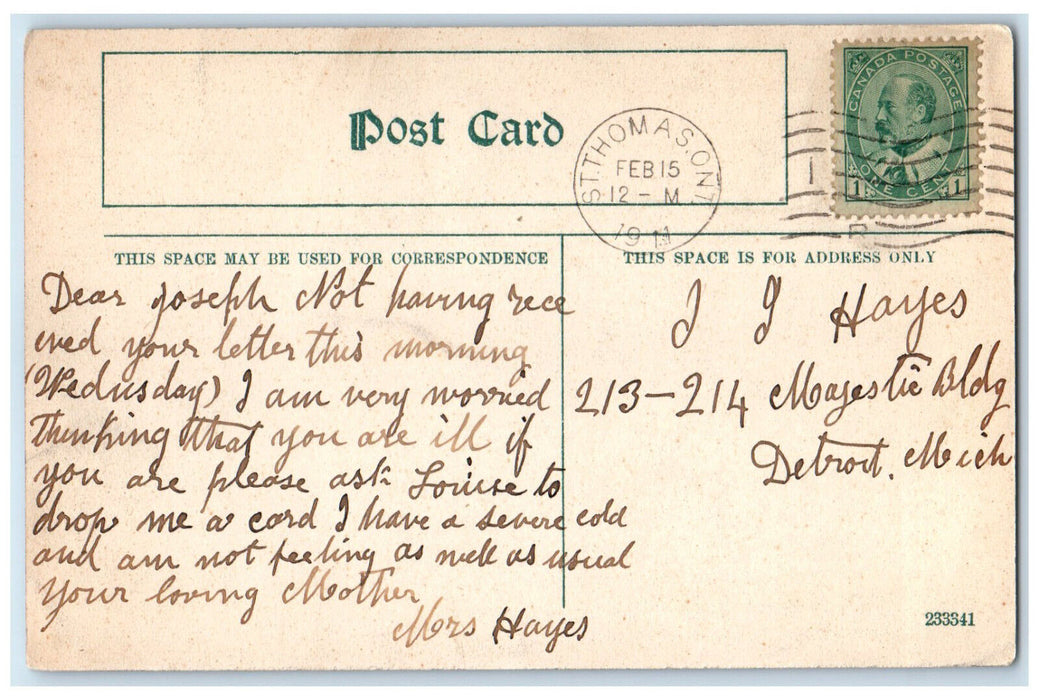 Post Card
CANADA POSTAGE
1 ONE CENT 1
ST. THOMAS. ONT
FEB 15
12 - M
1911
1
R
THIS SPACE MAY BE USED FOR CORRESPONDENCE
Dear Joseph Not having rece
ived your letter this morning
(Wednsday) I am very worried
thinking that you are ill if
you are please ask Louise to
drop me a card I have a severe cold
and am not feeling as well as usual
Your loving Mother
Mrs Hayes
THIS SPACE IS FOR ADDRESS ONLY
J J Hayes
213-214 Majestic Bldg
Detroit. Mich
233341